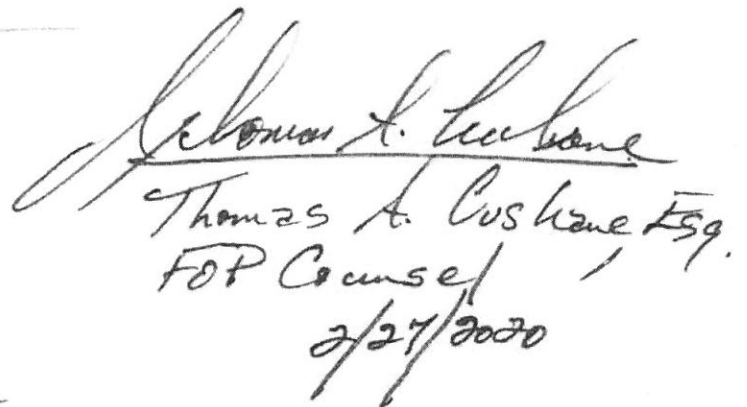 Thomas A. Cushane
Thomas A. Cushane, Esq.
FOP Counsel
2/27/2020